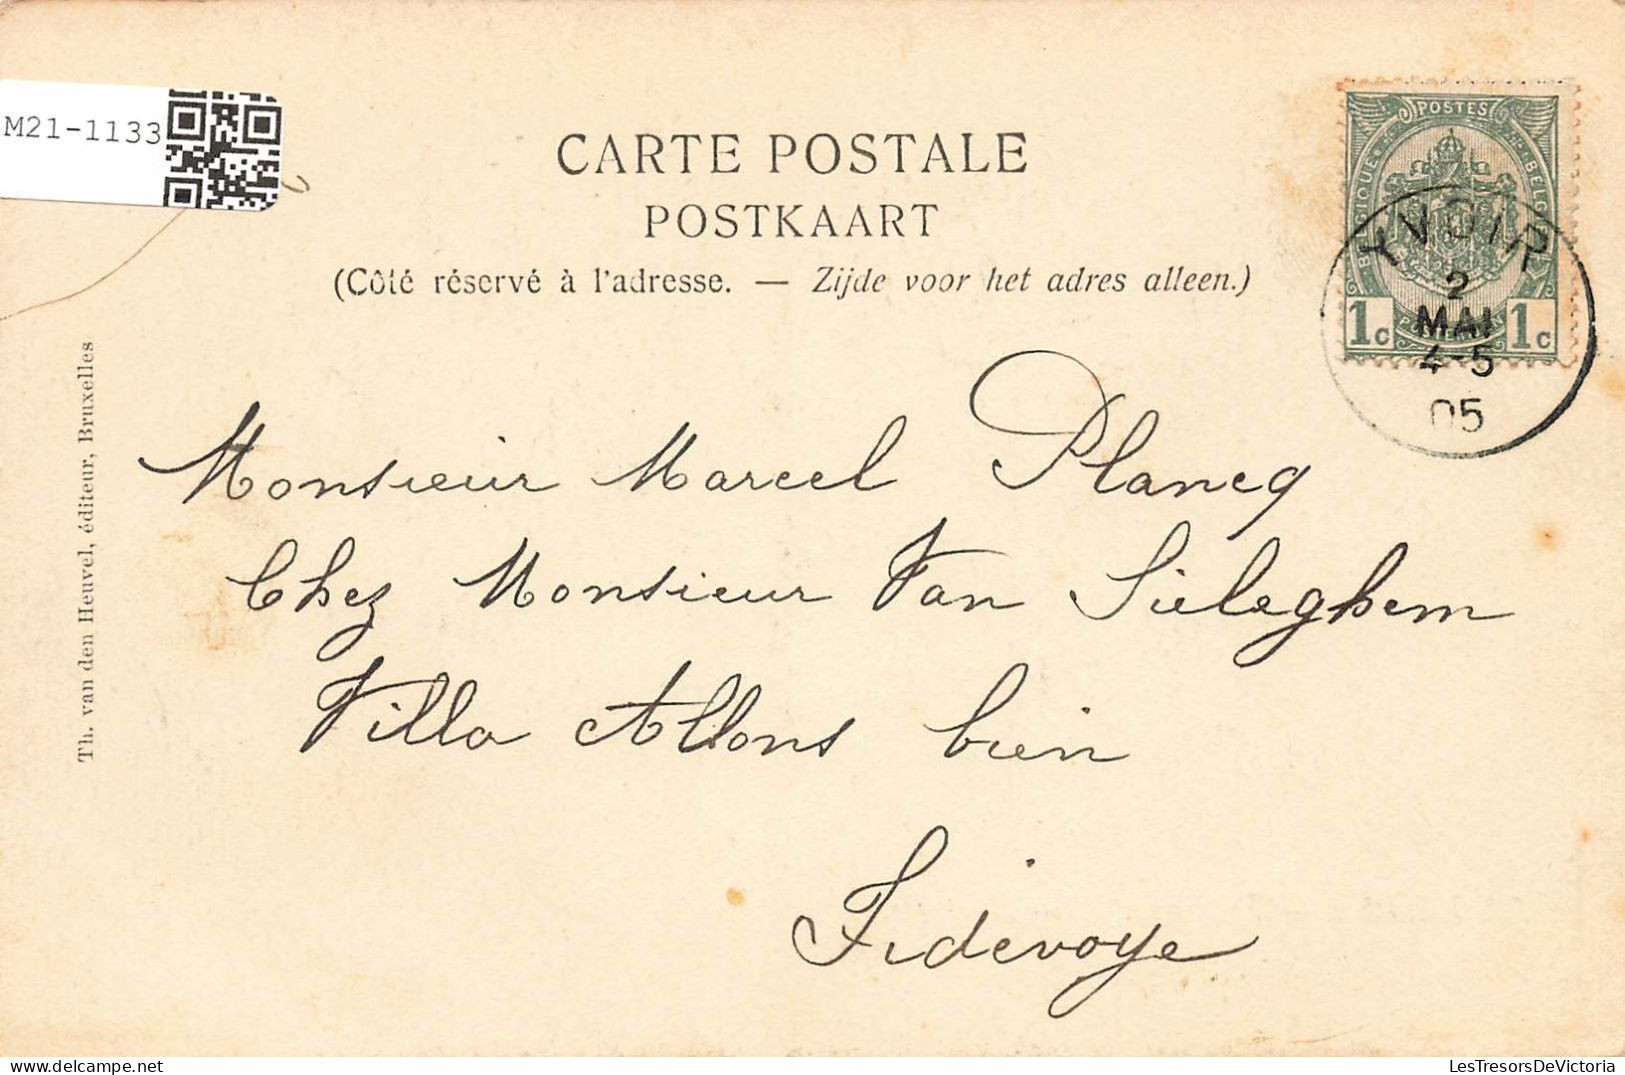 M21-1133
POSTES
BELGIQUE
1c
1c
YVOIR
2
MAI
4-5
05
CARTE POSTALE
POSTKAART
(Côté réservé à l'adresse. — Zijde voor het adres alleen.)
Th. van den Heuvel, éditeur, Bruxelles
Monsieur Marcel Plancq
Chez Monsieur Van Sieleghem
Villa Allons bien
Fidevoye
LesTresorsDeVictoria